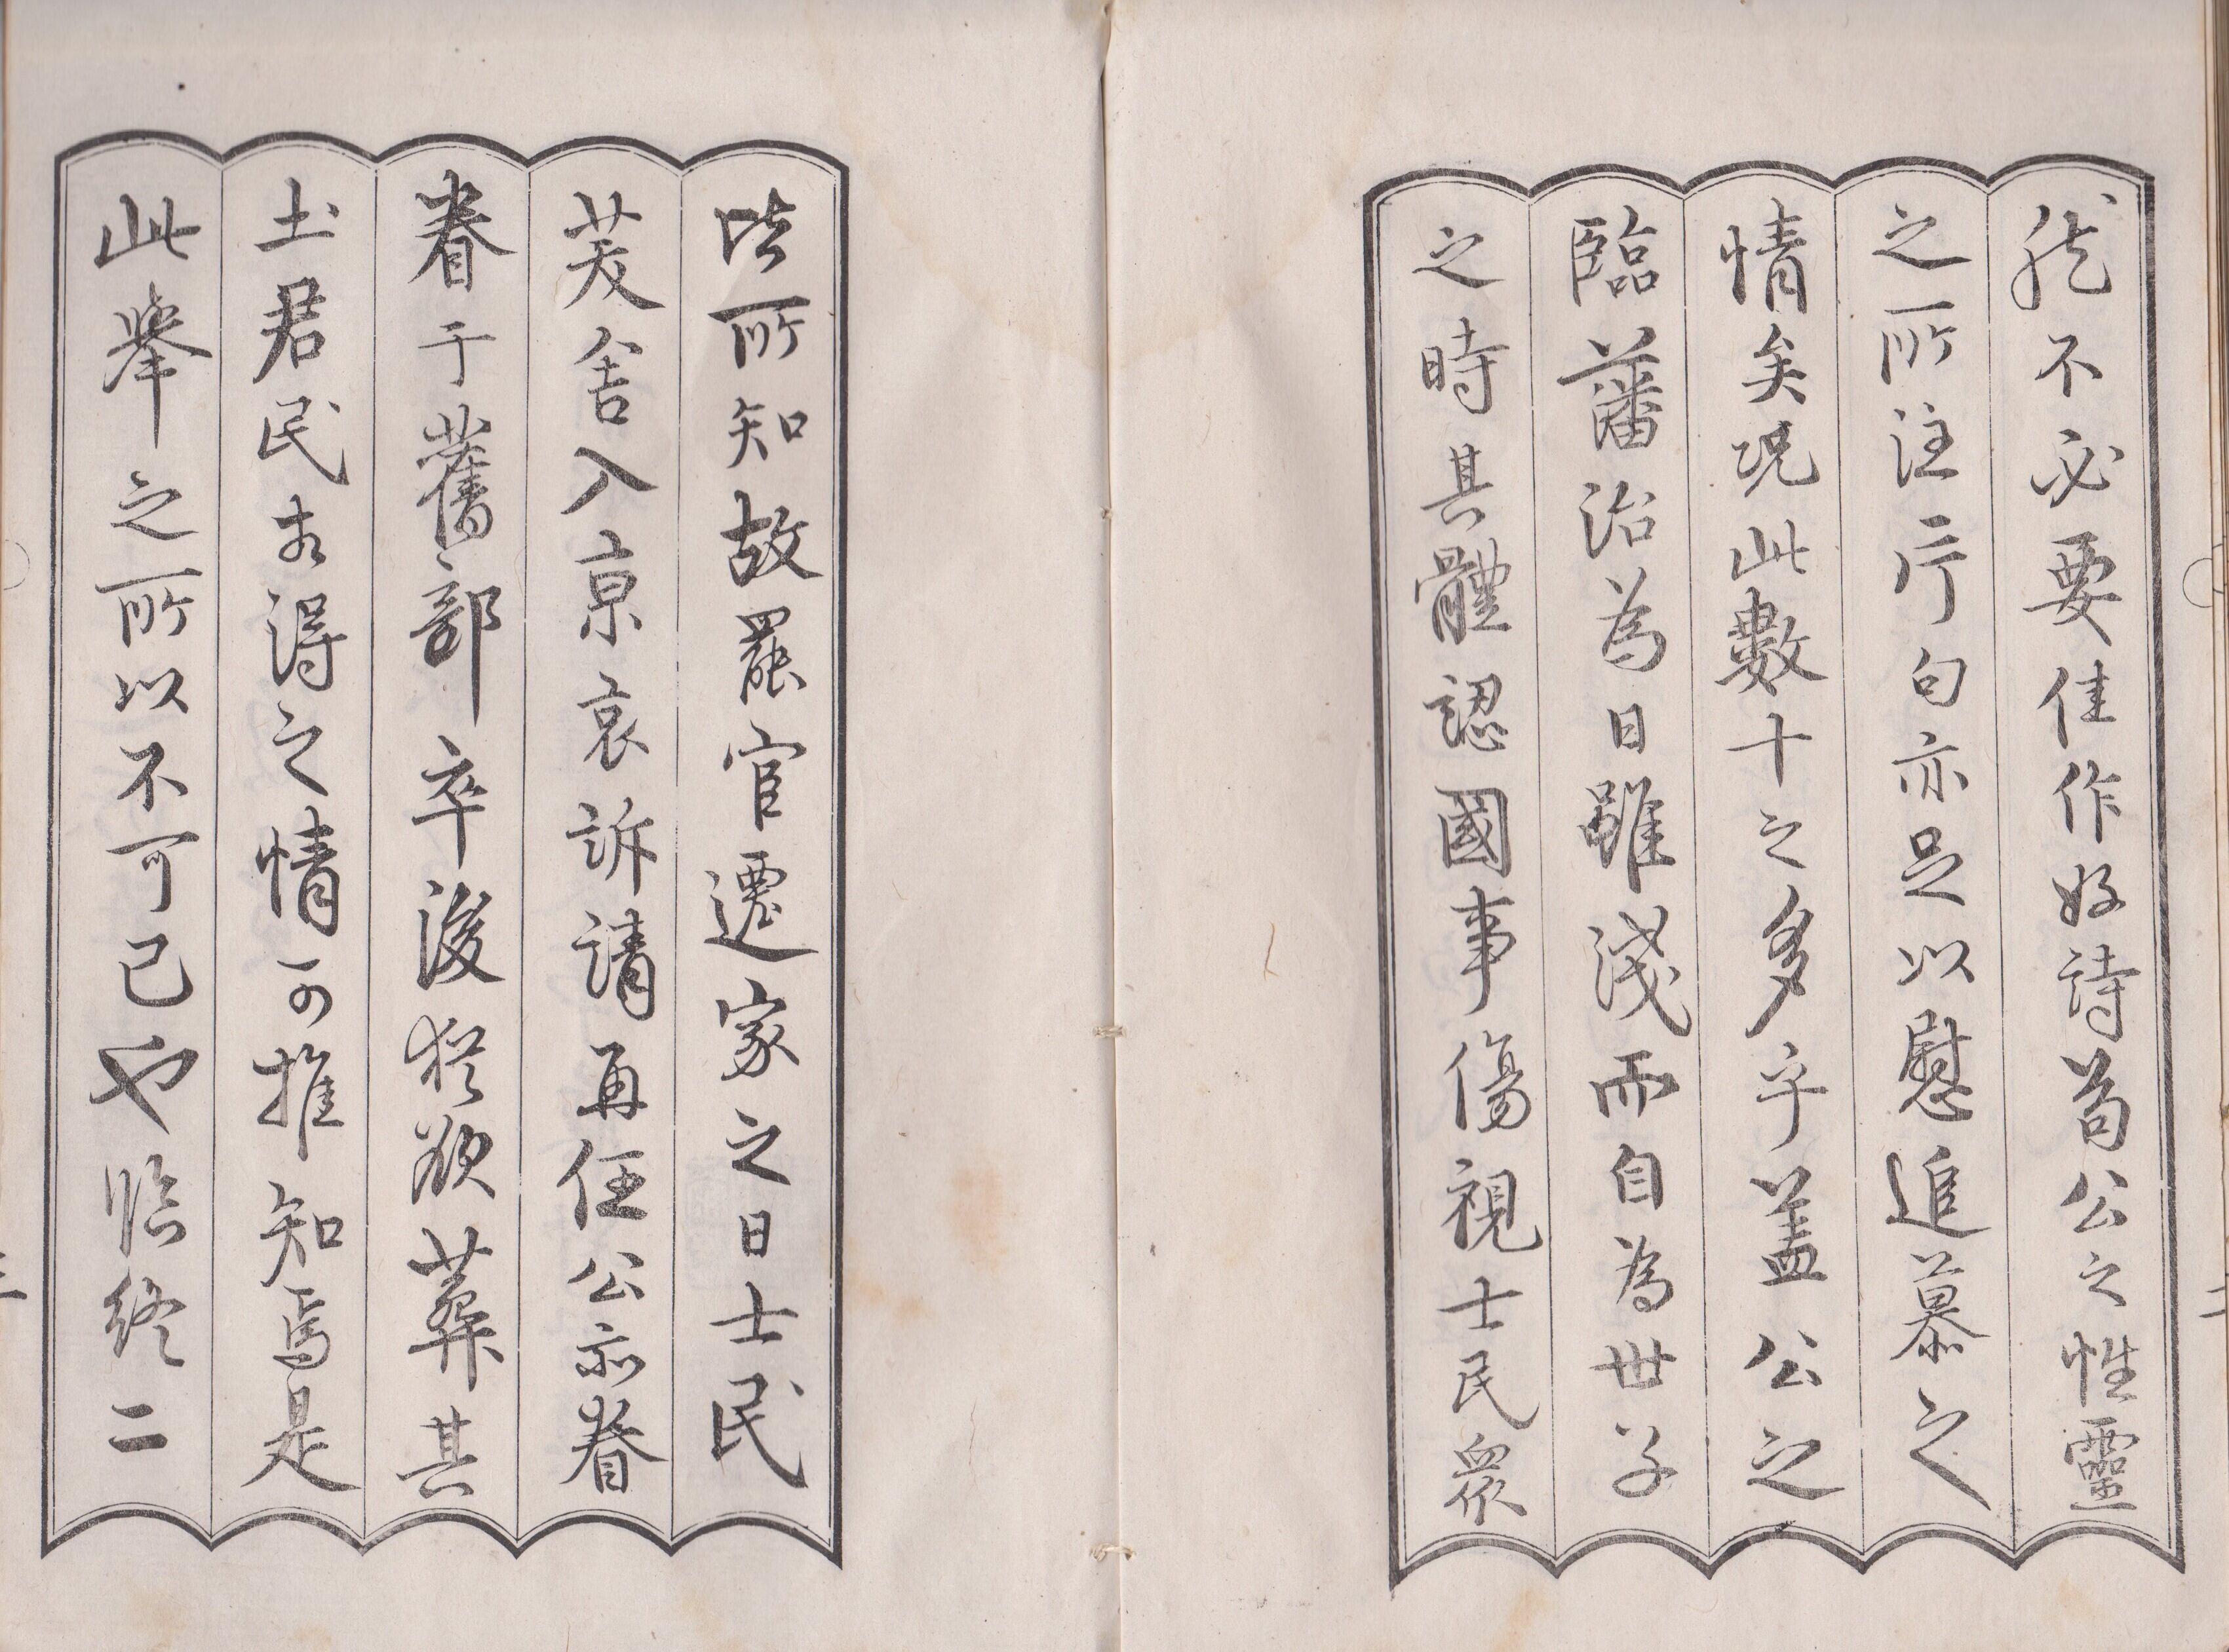 然不必要佳作好詩苟公之性靈
之所注片句亦足以慰追慕之
情矣況此數十之多乎蓋公之
臨藩治為日雖淺而自為世子
之時其體認國事傷視士民眾
皆所知故罷官遷家之日士民
茇舍入京哀訴請再任公亦眷
眷于舊部卒後猶欲葬其
土君民相得之情可推知焉是
此舉之所以不可已也臨終二
二
三